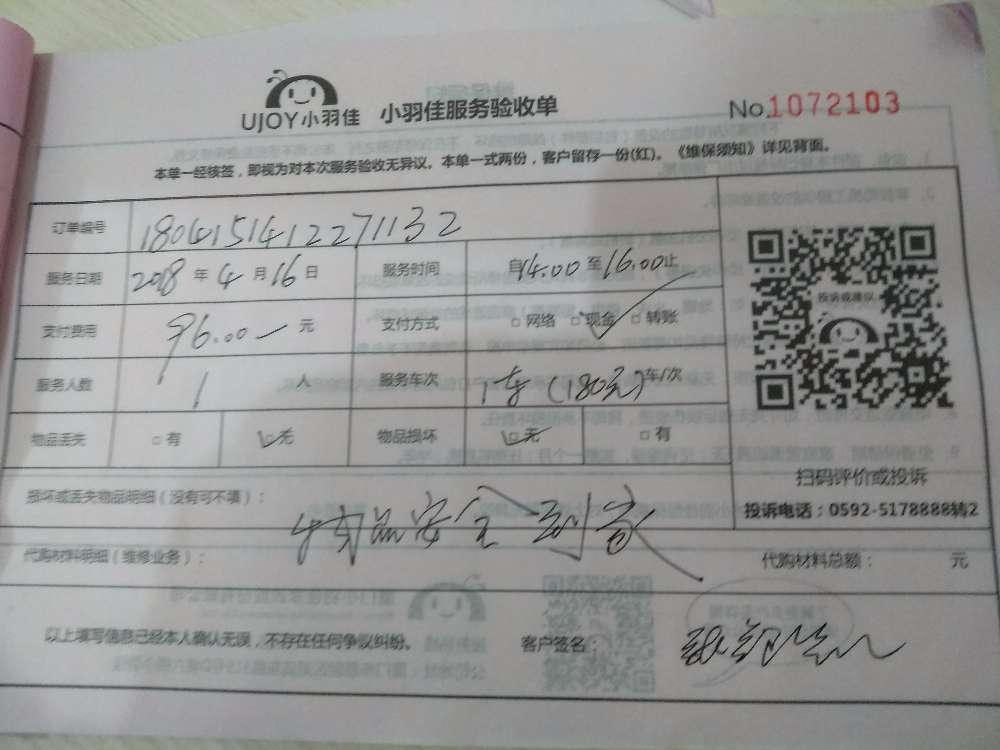 UJOY小羽佳 小羽佳服务验收单 No.1072103
本单一经核签，即视为对本次服务验收无异议。本单一式两份，客户留存一份(红)。《维保须知》详见背面。
订单编号 18041514122271132
服务日期 2018 年 4 月 16 日 服务时间 自14.00至16.00止
支付费用 96.00 元 支付方式 □网络 □现金 □转账
服务人数 1 人 服务车次 1车(180元)车/次
物品丢失 □有 □无 物品损坏 □无 □有
投诉或建议
扫码评价或投诉
投诉电话：0592-5178888转2
损坏或丢失物品明细（没有可不填）：
物品安全到家
代购材料明细（维修业务）： 代购材料总额： 元
以上填写信息已经本人确认无误，不存在任何争议纠纷。 客户签名：